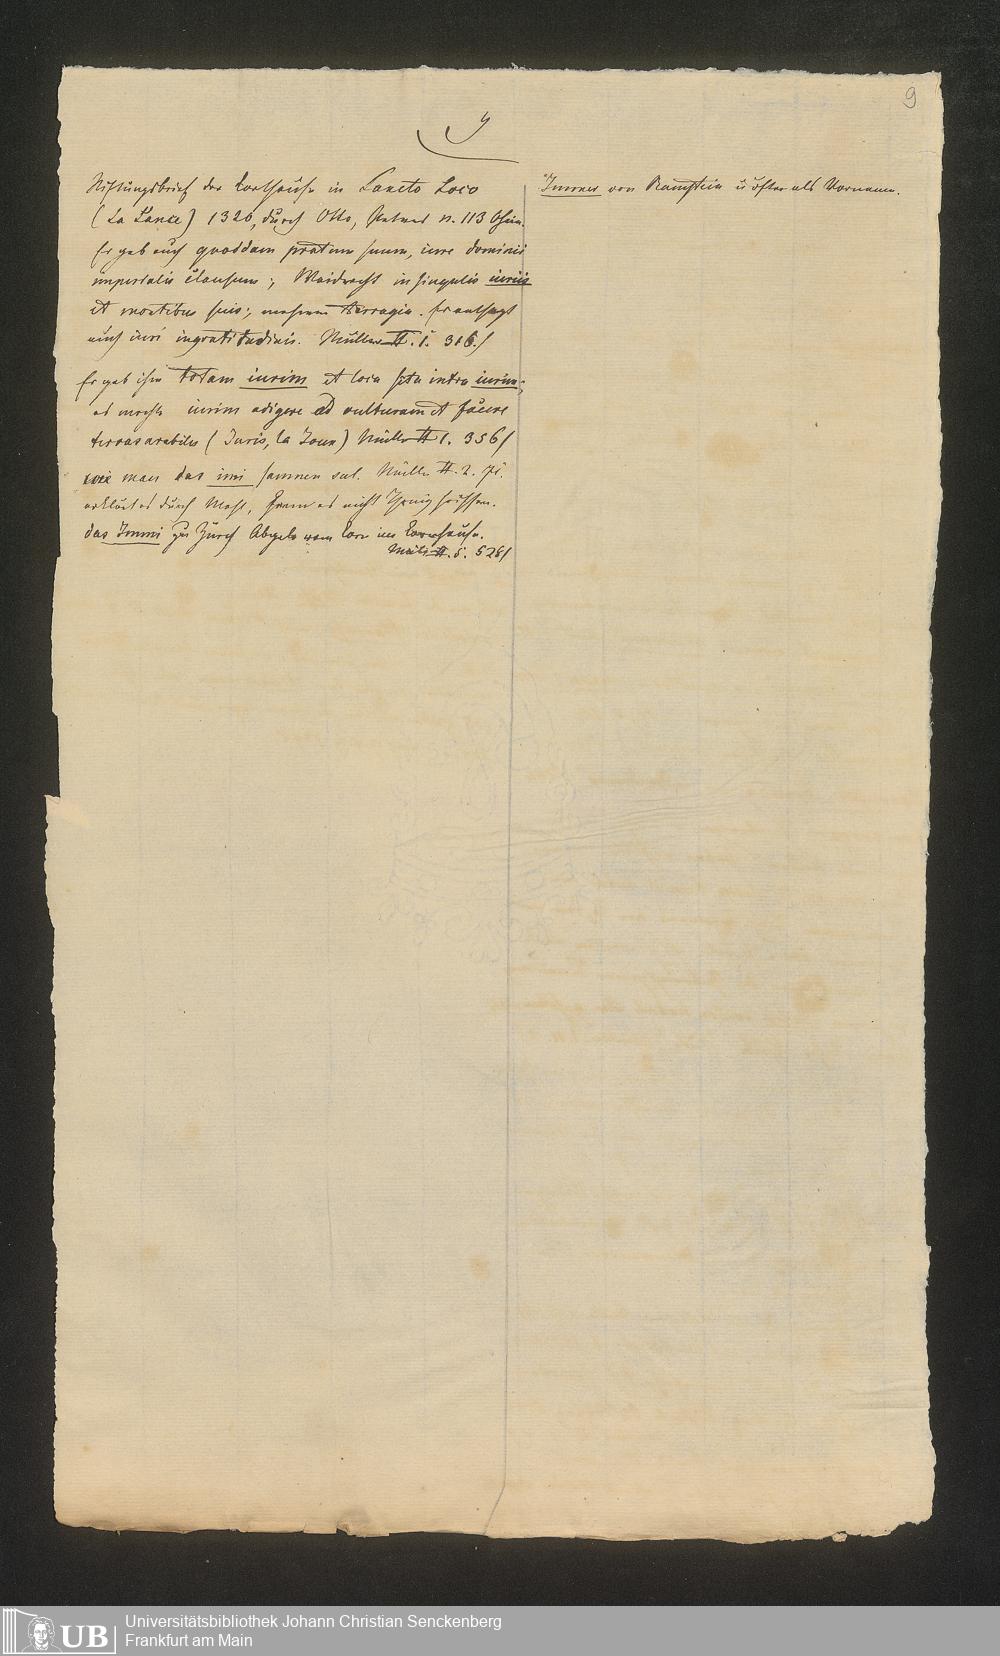 9
J
Stiftungsbrief der Carthause in Sancto Loco
(La Lance) 1320, durch Otto,
Er gab auch quoddam pratum suum, iure dominii
imperialis clausum; Weidrecht in singulis iuriis
et montibus suis; terragia. Er entsagt
auch iuri ingratitudinis. Müller II. 1. 316.
Er gab ihm totam iurim et loca sita intra iurim;
er mochte iurim redigere ad culturam et facere
terras arabiles (Juris, la Joux) Müller II 1. 356
wie man das imi sammen sol. Müller II. 2.
erklärt es durch Mehl, wenn es nicht Honig heißen.
das Immi zu Zürch Abgabe vom Korn im Kornhause.
Müll. II. 5. 526
Immer von Ramstein u öfter als Vorname.
UB
Universitätsbibliothek Johann Christian Senckenberg
Frankfurt am Main